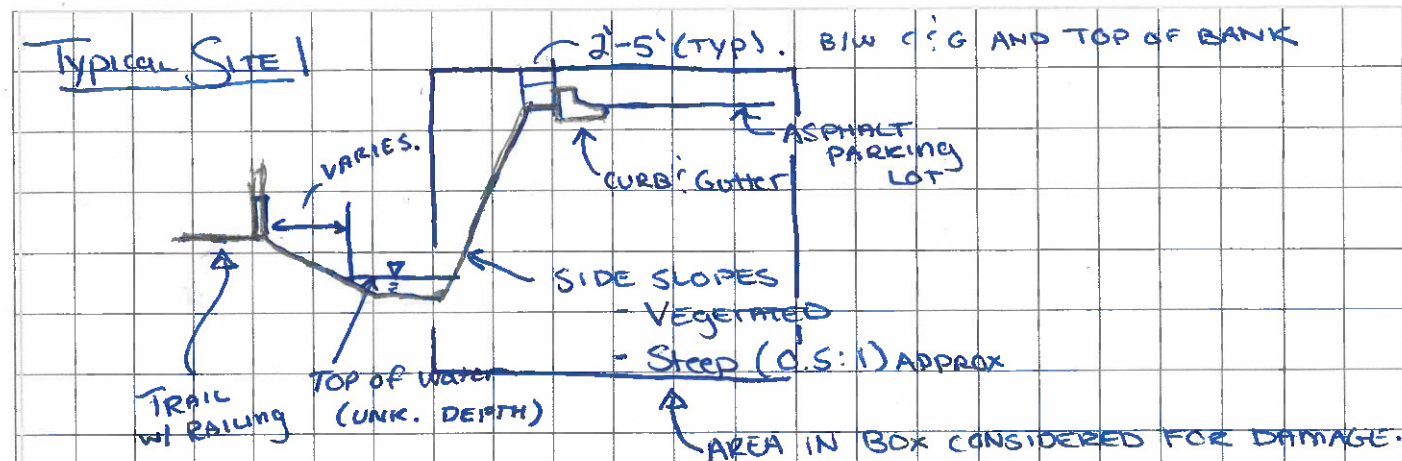 Typical Site 1
2'-5' (TYP). B/W C&G AND TOP OF BANK
ASPHALT
PARKING
LOT
CURB & Gutter
VARIES.
SIDE SLOPES
- VEGETATED
- Steep (0.5:1) APPROX
TOP OF Water
(UNK. DEPTH)
TRAIL
W/ RAILING
AREA IN BOX CONSIDERED FOR DAMAGE.